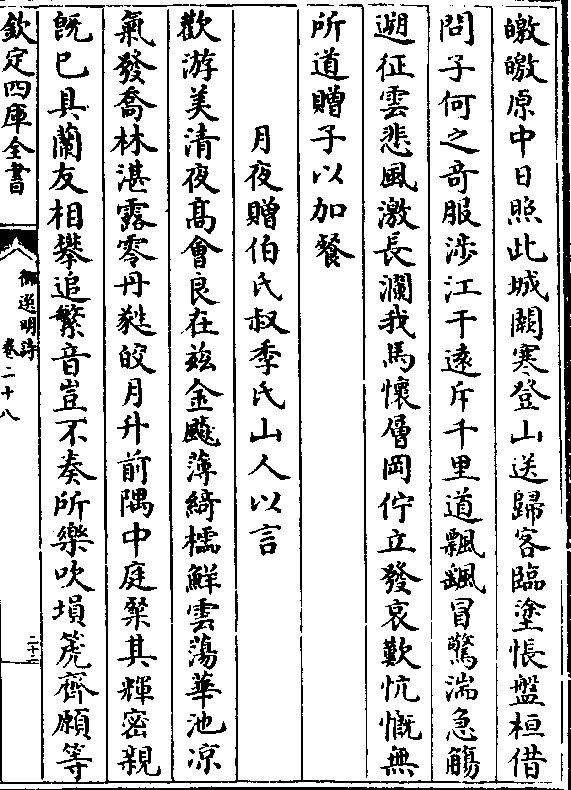 皦皦原中日照此城闕寒登山送歸客臨塗悵盤桓借
問子何之奇服涉江干遠斥千里道飄颻冒驚湍急觴
遡征雲悲風激長瀾我馬懷層岡佇立發哀歎忼慨無
所道贈子以加餐
月夜贈伯氏叔季氏山人以言
歡游美清夜高會良在兹金飈薄綺櫺鮮雲蕩華池凉
氣發喬林湛露零丹蕤皎月升前隅中庭粲其輝密親
既已具蘭友相攀追繁音豈不奏所樂吹塤箎齊願等
欽定四庫全書
御選明詩
卷二十八
二十二